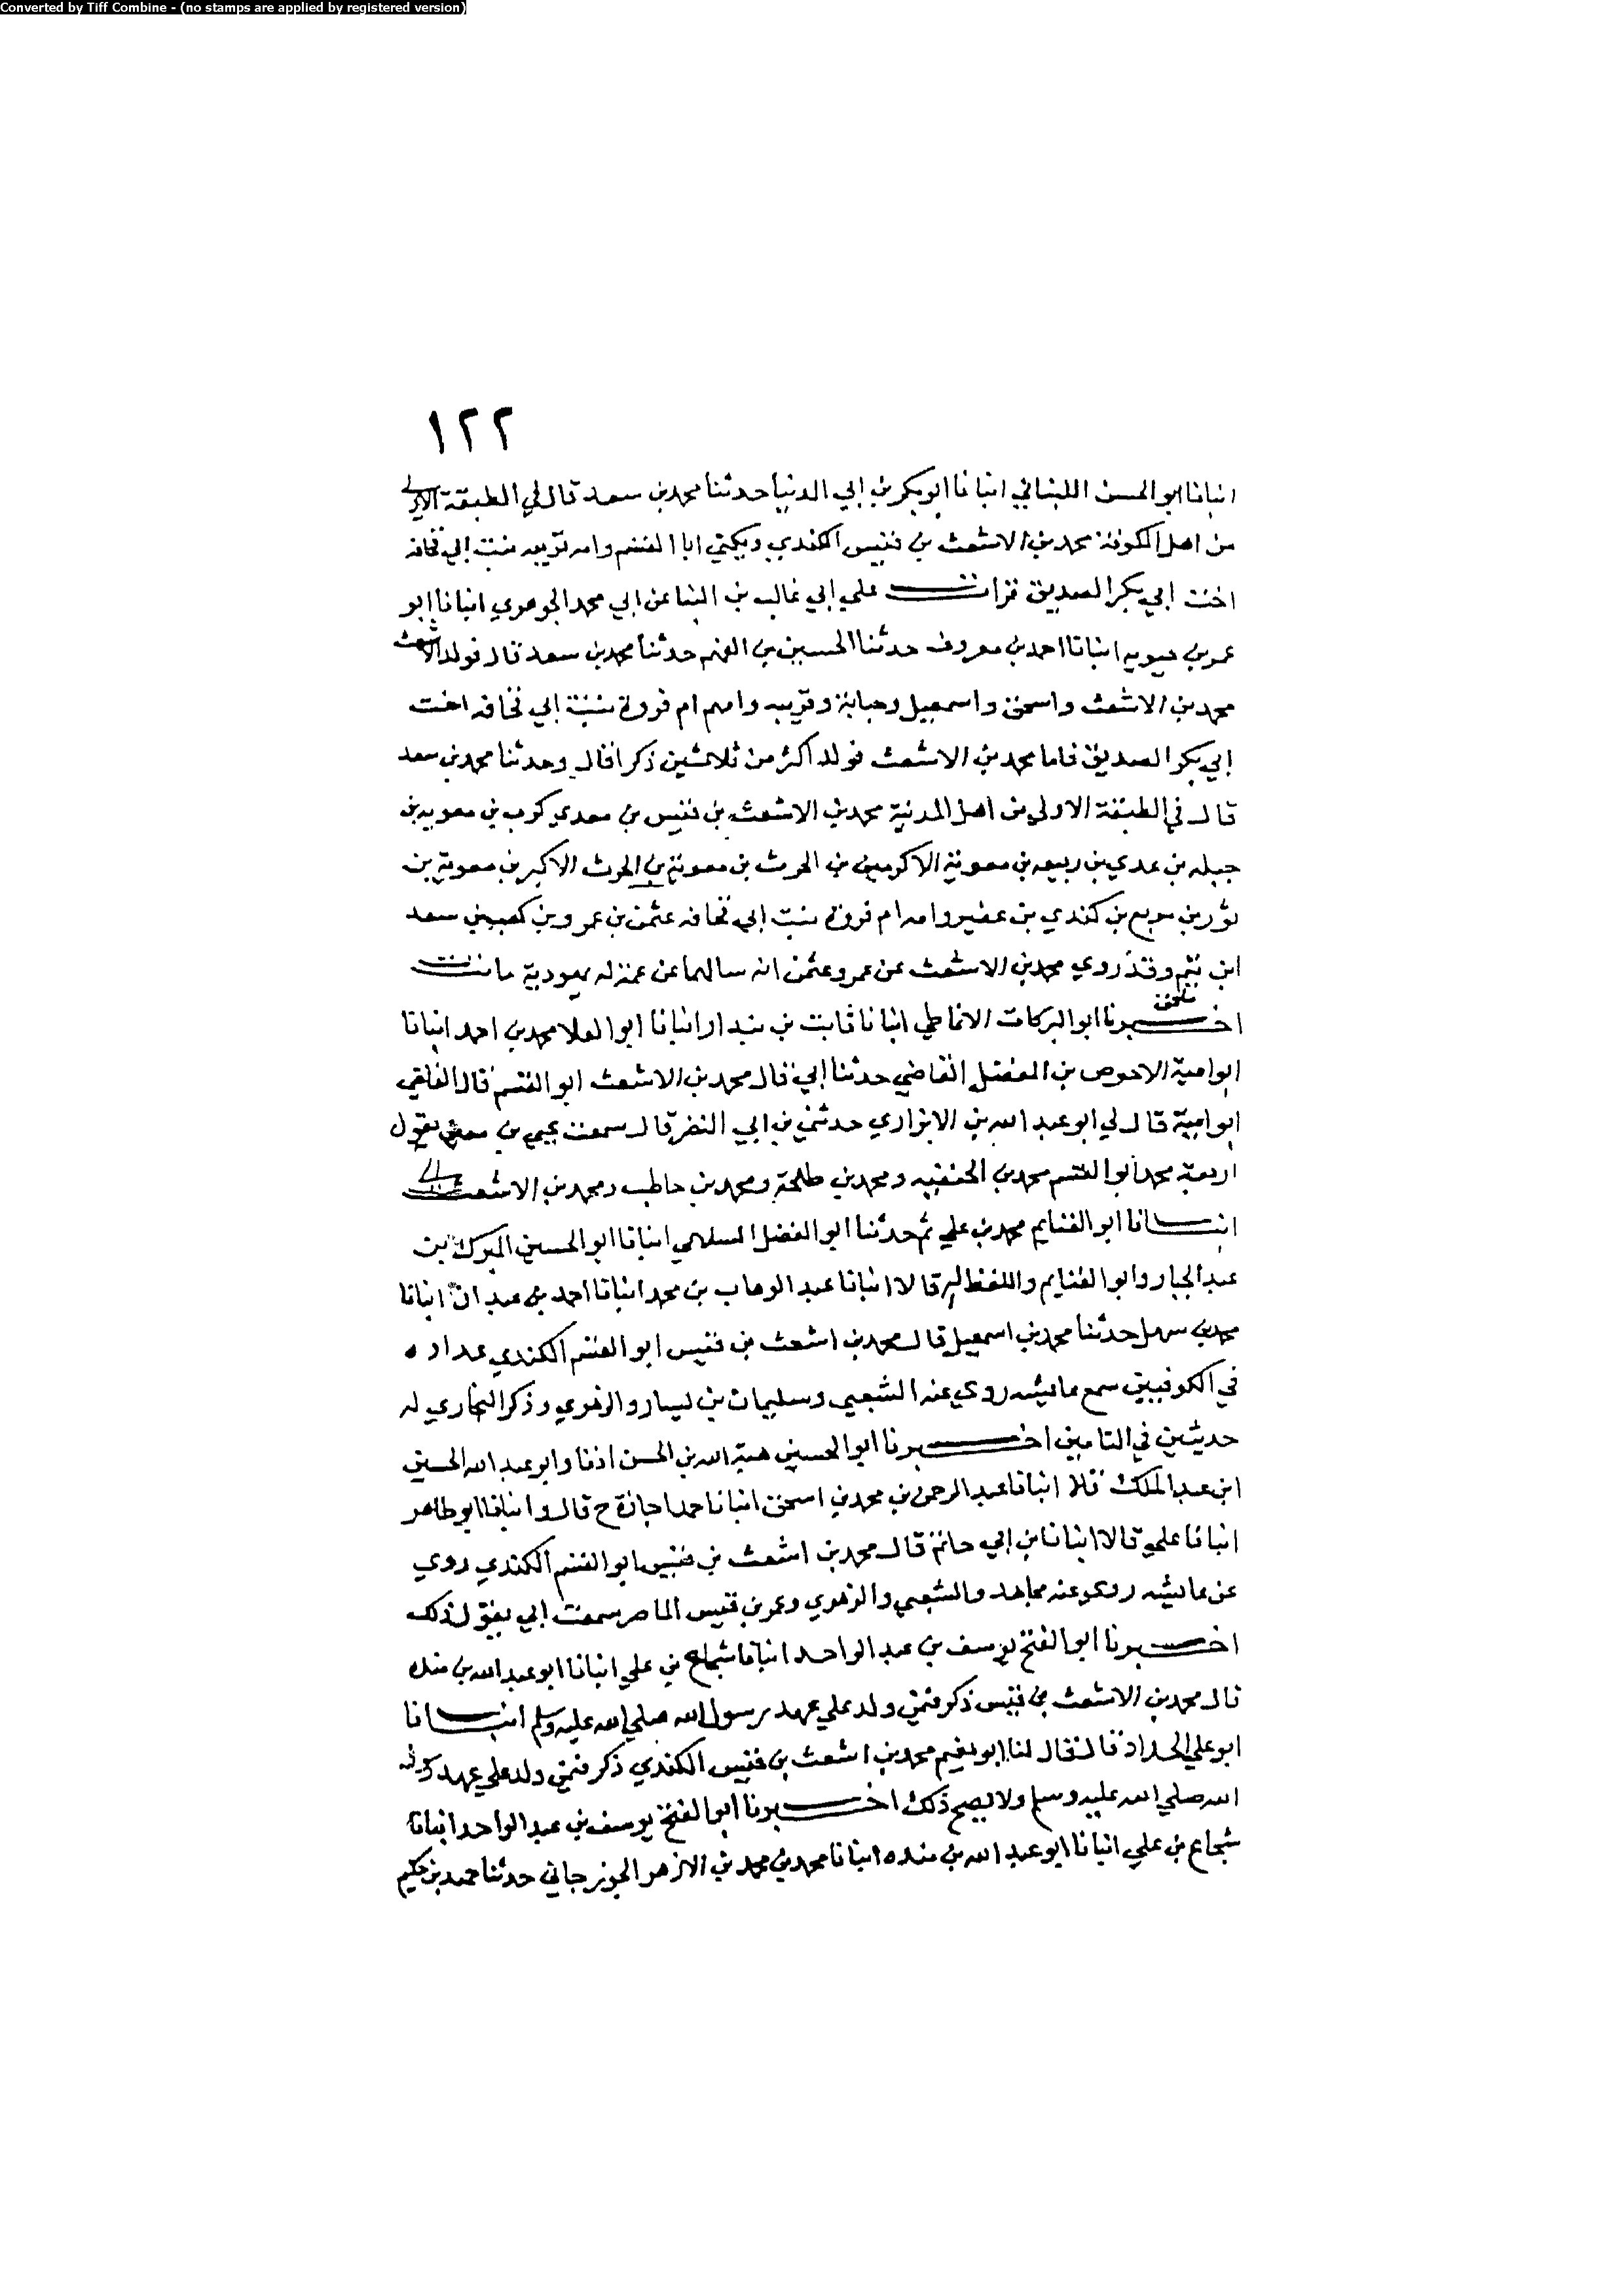 Converted by Tiff Combine - (no stamps are applied by registered version)
١٢٢
انبانا ابو الحسن اللبناني انبانا ابو بكر بن ابي الدنيا حدثنا محمد بن سعد قال في الطبقة الاولى
من اهل الكوفة محمد بن الاشعث بن قيس الكندي ويكنى ابا القسم وامه قريبه بنت ابي قحافه
اخت ابي بكر الصديق قرات على ابي غالب بن البنا عن ابي محمد الجوهري انبانا ابو
عمر بن حيويه انبانا احمد بن معروف حدثنا الحسين بن الفهم حدثنا محمد بن سعد قال فولد الاشعث
محمد بن الاشعث واسحق واسمعيل وحبابة وقريبه وامهم ام فروة بنت ابي قحافه اخت
ابي بكر الصديق فاما محمد بن الاشعث فولد اكثر من ثلاثين ذكرا قال وحدثنا محمد بن سعد
قال في الطبقة الاولى من اهل المدينة محمد بن الاشعث بن قيس بن معدي كرب بن معويه بن
جبله بن عدي بن ربيعه بن معوية الاكرمين بن الحرث بن معوية بن الحرث الاكبر بن معوية بن
ثور بن مرتع بن كندي بن عفير وامه ام فروة بنت ابي قحافه عثمن بن عمرو بن كعب بن سعد
ابن تيم وقد روي محمد بن الاشعث عن عمر وعثمن انه سالهما عن عمة له يهودية ماتت
اخبرنا ابو البركات الانماطي انبانا ثابت بن بندار انبانا ابو العلا محمد بن احمد انبانا
ابو امية الاحوص بن المفضل القاضي حدثنا ابي قال محمد بن الاشعث ابو القسم قال القاضي
ابو امية قال لي ابو عبد الله بن الابزاري حدثني بن ابي النضر قال سمعت يحيى بن معين يقول
اربعة محمد ابو القسم محمد بن الحنفيه ومحمد بن طلحة ومحمد بن حاطب ومحمد بن الاشعث
انبانا ابو الغنايم محمد بن علي ثم حدثنا ابو الفضل السلامي انبانا ابو الحسين المبرك بن
عبد الجبار وابو الغنايم واللفظ له قالا انبانا عبد الوهاب بن محمد انبانا احمد بن عبدان انبانا
محمد بن سهل حدثنا محمد بن اسمعيل قال محمد بن اشعث بن قيس ابو القسم الكندي عداده
في الكوفيين سمع عايشه روي عنه الشعبي وسليمان بن يسار والزهري وذكر البخاري له
حديثين في التامين اخبرنا ابو الحسين هبة الله بن الحسن اذنا وابو عبد الله الحسين
ابن عبد الملك قالا انبانا عبد الرحمن بن محمد بن اسحق انبانا حمد اجازة ح قال وانبانا ابو طاهر
انبانا علي قالا انبانا بن ابي حاتم قال محمد بن اشعث بن قيس ابو القسم الكندي روي
عن عايشه روي عنه مجاهد والشعبي والزهري وعمر بن قيس الماصر سمعت ابي يقول ذلك
اخبرنا ابو الفتح يوسف بن عبد الواحد انبانا شجاع بن علي انبانا ابو عبد الله بن منده
قال محمد بن الاشعث بن قيس ذكر فيمن ولد على عهد رسول الله صلي الله عليه وسلم انبانا
ابو علي الحداد قال قال لنا ابو نعيم محمد بن اشعث بن قيس الكندي ذكر فيمن ولد على عهد رسول
الله صلي الله عليه وسلم ولا يصح ذلك اخبرنا ابو الفتح يوسف بن عبد الواحد انبانا
شجاع بن علي انبانا ابو عبد الله بن منده انبانا محمد بن محمد بن الازهر الجوزجاني حدثنا حميد بن حكيم